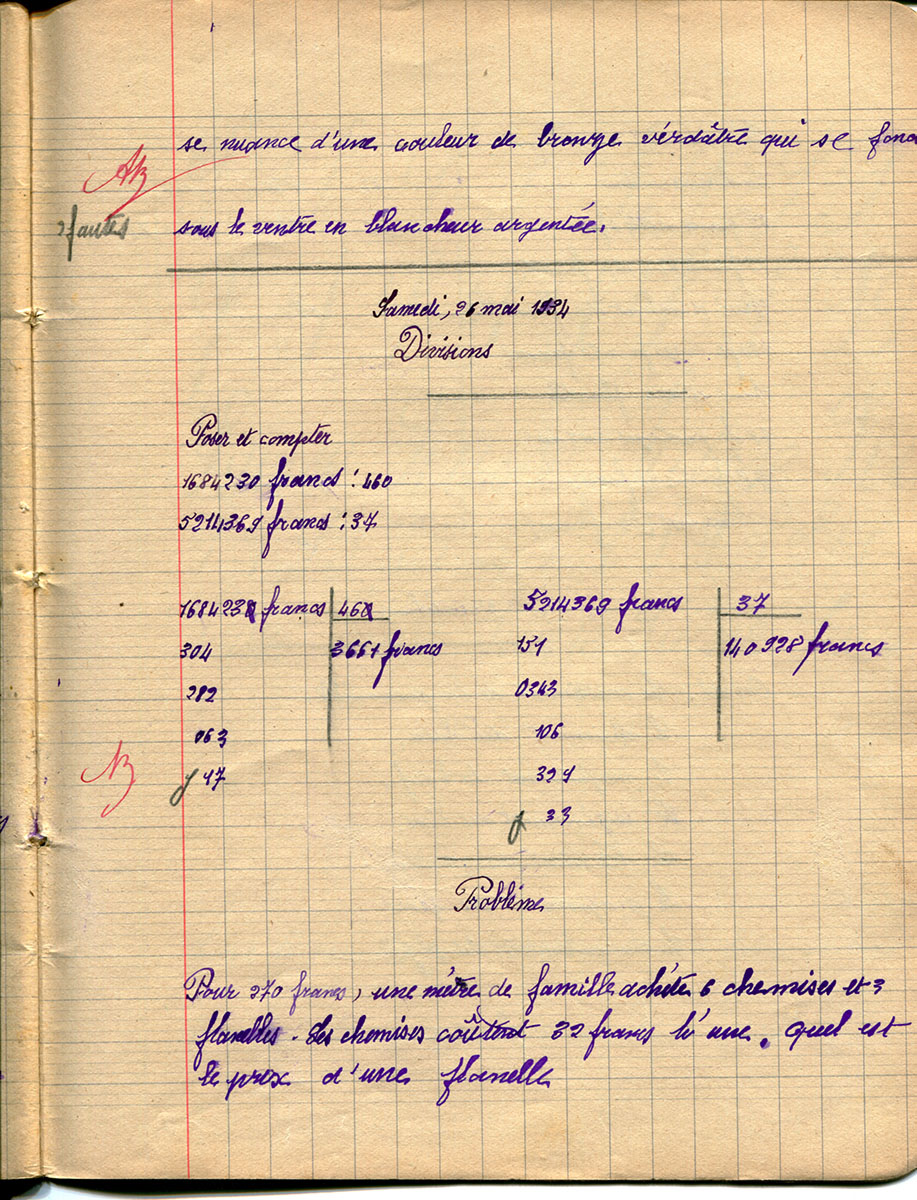 se nuance d'une couleur de bronze verdâtre qui se fond
AB
2 fautes
sous le ventre en blancheur argentée.
Samedi, 26 mai 1934
Divisions
Poser et compter
1684230 francs : 460
5214369 francs : 37
1684230 francs 460 5214369 francs 37
304 3661 francs 151 140928 francs
282 0343
063 106
17 329
B 33
Problème
Pour 270 francs, une mère de famille achète 6 chemises et 3
flanelles. Les chemises coûtent 32 francs l'une. Quel est
le prix d'une flanelle